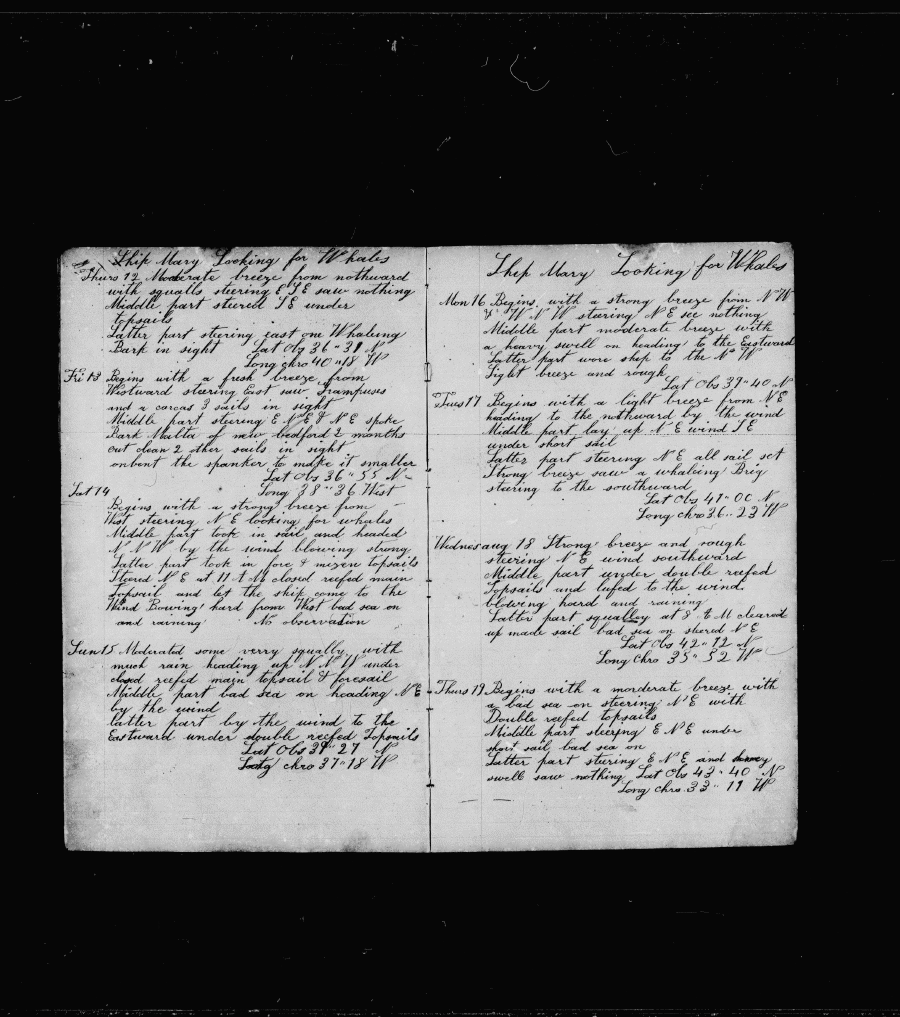 Ship Mary Looking for Whales
Thurs 12 Moderate breeze from nothward
with squalls steering E S E saw nothing
Middle part steered S E under
topsails
Latter part stering east one Whaleing
Bark in sight Lat Obs 36 " 31 N
Long chro 40 " 18 W
Fri 13 Begins with a fresh breeze from
Westward steering East saw grampuses
and a corcas 3 sails in sight
Middle part steering E N E & N E spoke
Bark Malta of new bedford 2 months
out clean 2 other sails in sight
onbent the spanker to make it smaller
Lat Obs 36 " 55 N
Long 38 " 36 West
Sat 14
Begins with a strong breeze from
West steering N E looking for whales
Middle part took in sail and headed
N N W by the wind blowing strong
Latter part took in fore & mezen topsails
Stered N E at 11 A M closed reefed main
Topsail and let the ship come to the
Wind Bowing hard from West bad sea on
and raining No observation
Sun 15 Moderated some verry squally with
much rain heading up N N W under
closed reefed main topsail & foresail
Middle part bad sea on heading N E
by the wind
latter part by the wind to the
Eastward under double reefed Topsails
Lat Obs 39 " 27 N
Long chro 37 " 18 W
Ship Mary Looking for Whales
Mon 16 Begins with a strong breeze from N W
& W N W stering N E see nothing
Middle part moderate breeze with
a heavy swell on heading to the Eastward
Latter part wore ship to the N W
Light breeze and rough
Lat Obs 39 " 40 N
Tues 17 Begins with a light breeze from N E
heading to the nothward by the wind
Middle part lay up N E wind S E
under short sail
Latter part steering N E all sail set
Strong breeze saw a whaleing Brig
steering to the southward
Lat Obs 41 " 00 N
Long chro 36 " 23 W
Wednes aug 18 Strong breeze and rough
steering N E wind southward
Middle part under double reefed
Topsails and lufed to the wind
blowing hoard and raining
Latter part squalley at 8 A M cleared
up made sail bad sea on steered N E
Lat Obs 42 " 12 N
Long Chro 35 " 52 W
Thurs 19 Begins with a morderate breeze with
a bad sea on steering N E with
Double reefed topsails
Middle part steering E N E under
short sail bad sea on
Latter part stering E N E and
swell saw nothing Lat Obs 43 " 40 N
Long chro 33 " 11 W